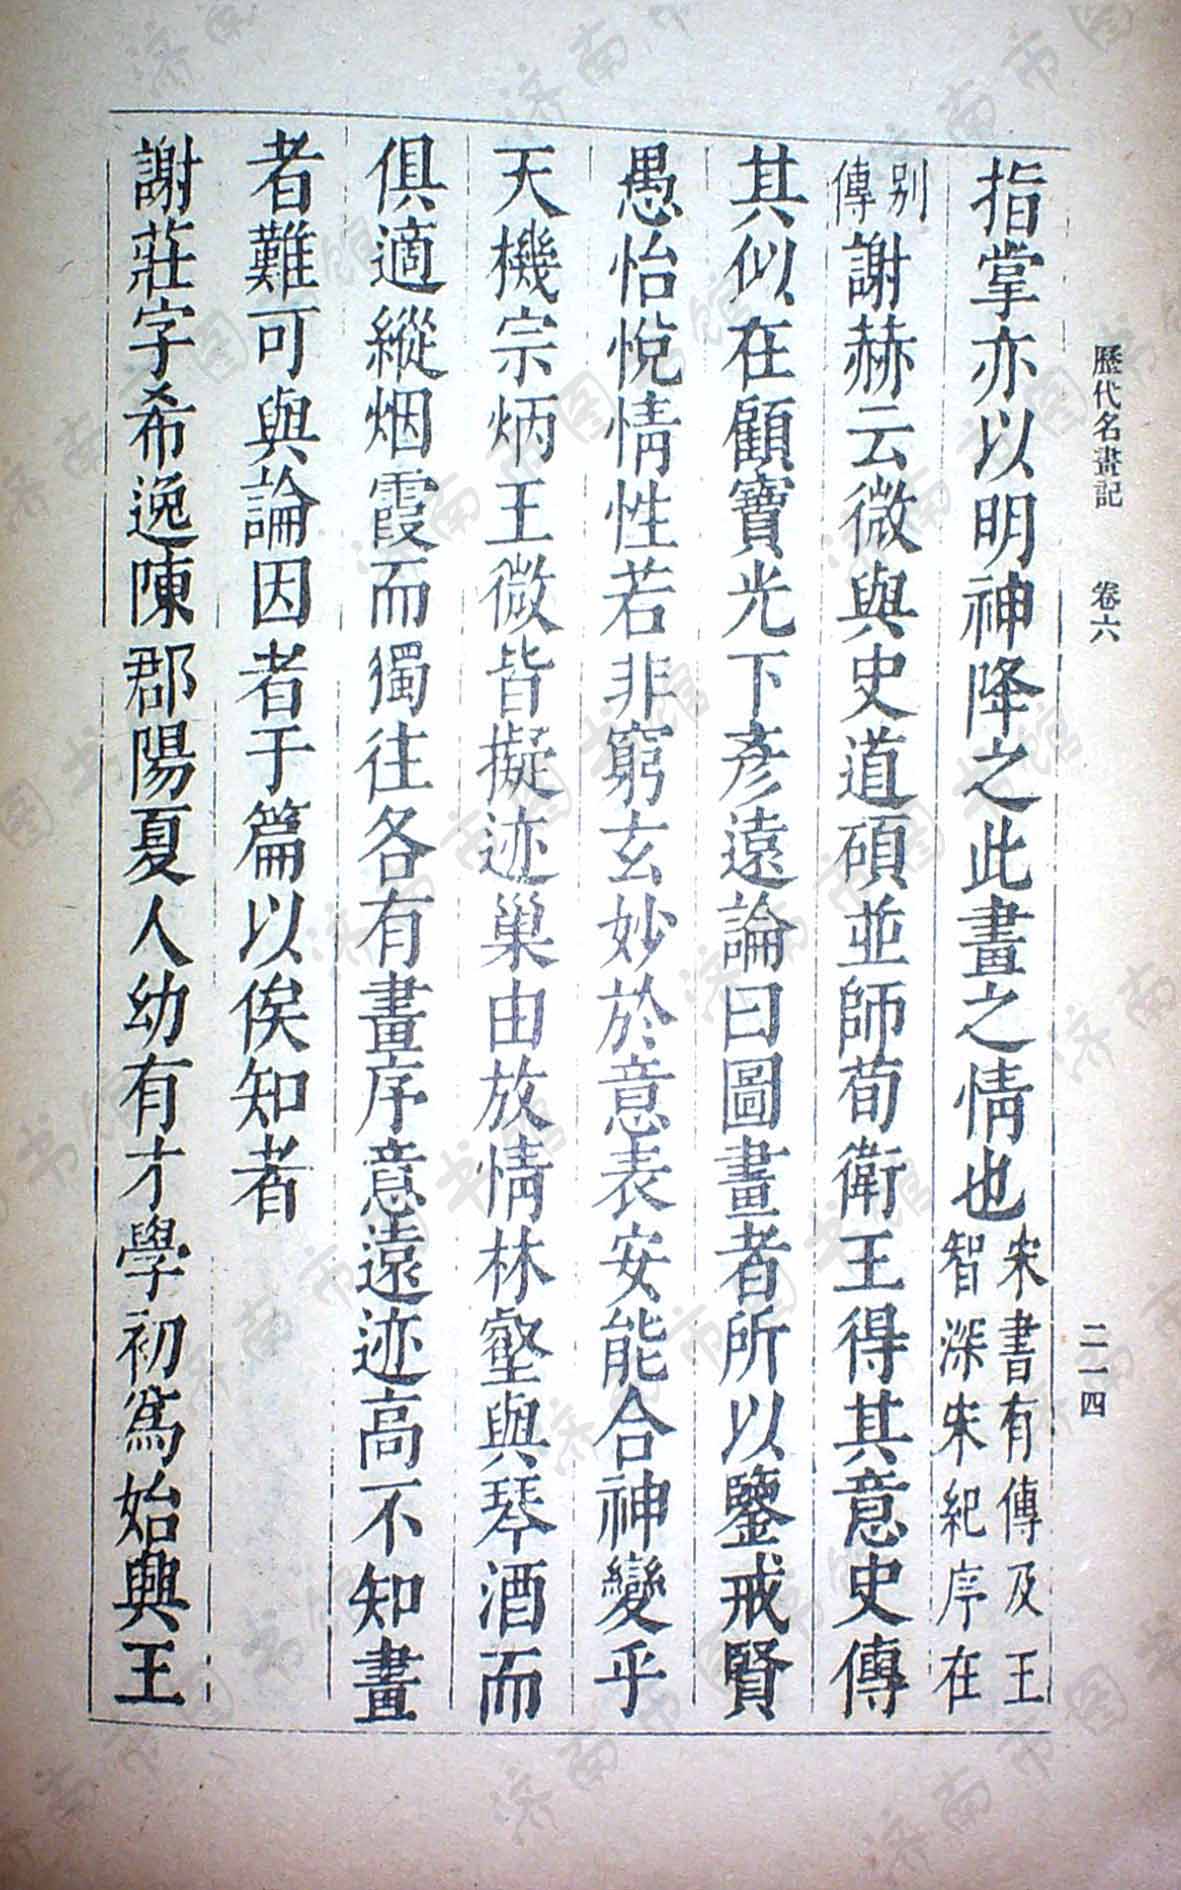 歷代名畫記 卷六 二一四
指掌亦以明神降之此畫之情也宋書有傳及王智深宋紀序在
別傳謝赫云微與史道碩並師荀衛王得其意史傳
其似在顧寶光下彥遠論曰圖畫者所以鑒戒賢
愚怡悅情性若非窮玄妙於意表安能合神變乎
天機宗炳王微皆擬迹巢由放情林壑與琴酒而
俱適縱烟霞而獨往各有畫序意遠迹高不知畫
者難可與論因著于篇以俟知者
謝莊字希逸陳郡陽夏人幼有才學初爲始興王
济南市图书馆